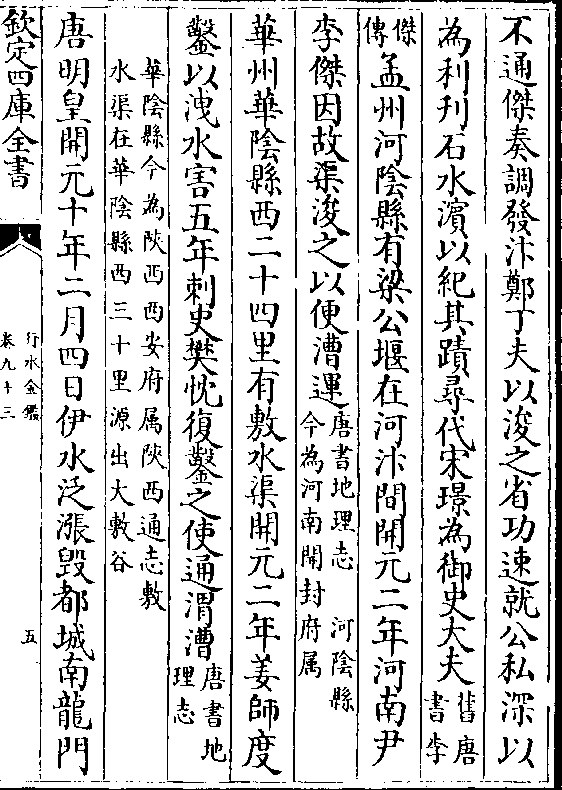 不通傑奏調發汴鄭丁夫以浚之省功速就公私深以
為利刋石水濵以紀其蹟尋代宋璟為御史大夫舊唐書李
傑傳孟州河陰縣有梁公堰在河汴間開元二年河南尹
李傑因故渠浚之以便漕運唐書地理志河隂縣今為河南開封府属
華州華陰縣西二十四里有敷水渠開元二年姜師度
鑿以洩水害五年刺史樊忱復鑿之使通渭漕唐書地理志
華陰縣今為陜西西安府属陜西通志敷
水渠在華陰縣西三十里源出大敷谷
唐明皇開元十年二月四日伊水泛漲毀都城南龍門
欽定四庫全書
行水金鑑
卷九十三
五